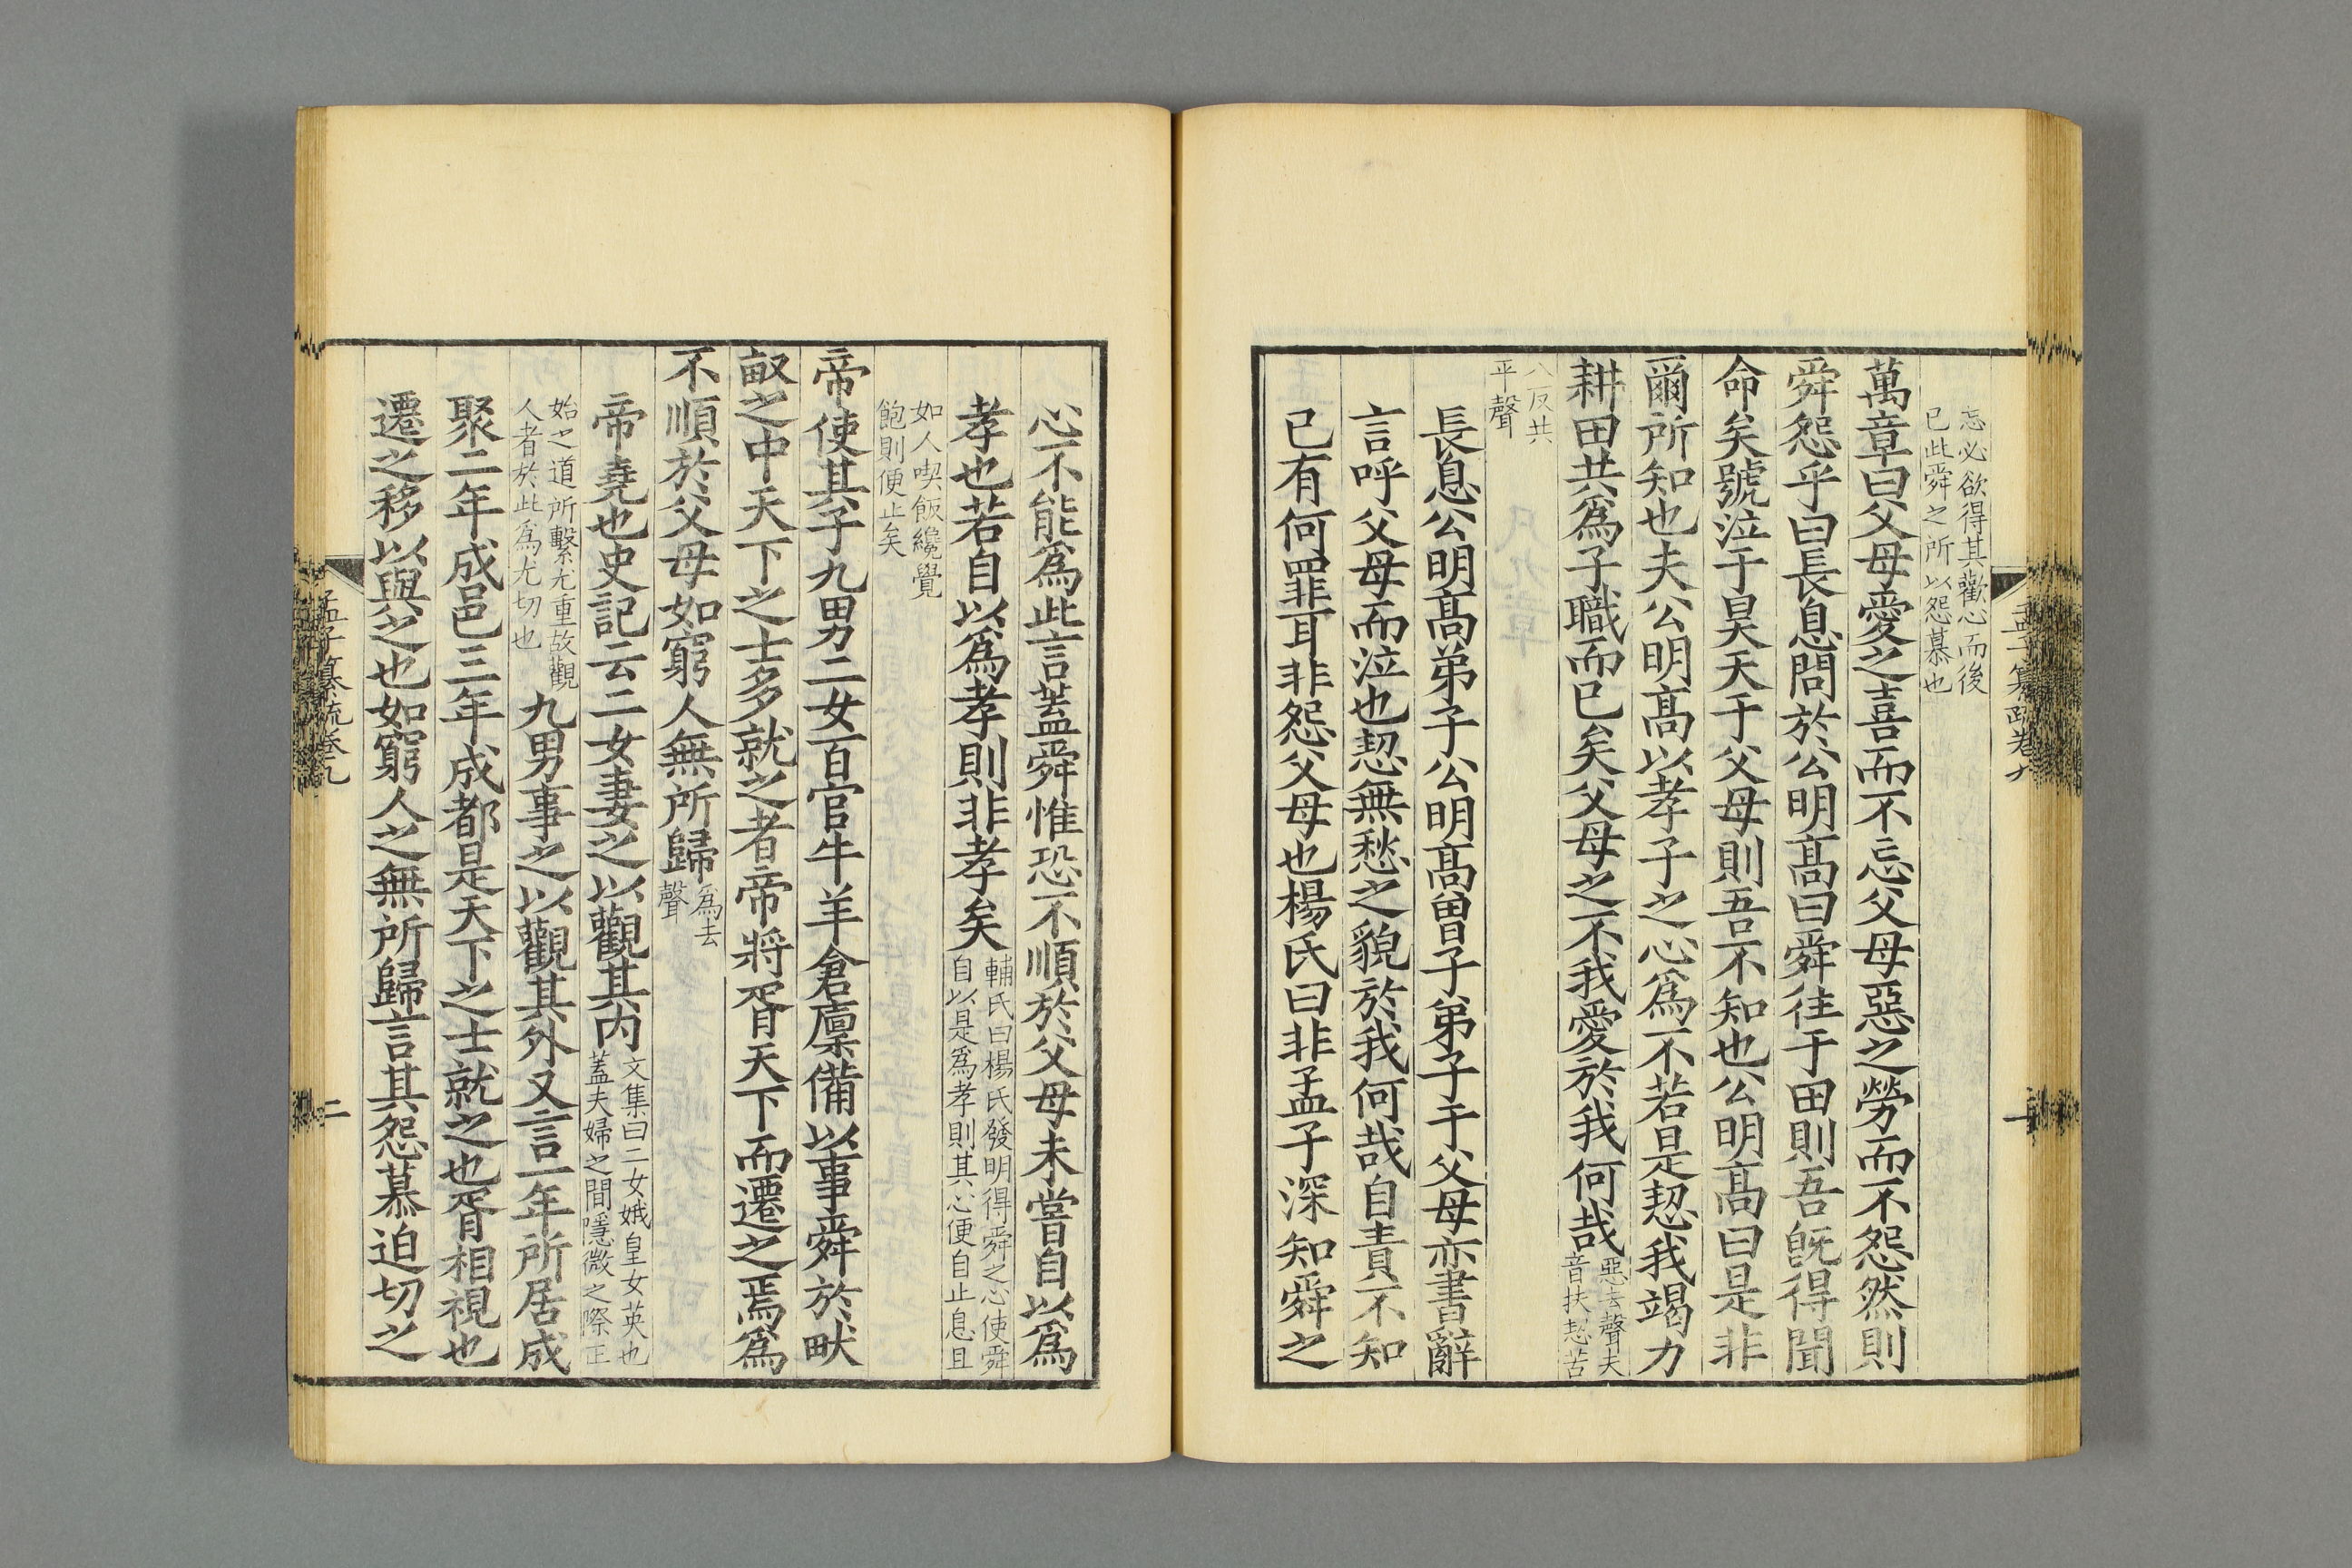 忘必欲得其歡心而後
已此舜之所以怨慕也
萬章曰父母愛之喜而不忘父母惡之勞而不怨然則
舜怨乎曰長息問於公明髙曰舜往于田則吾旣得聞
命矣號泣于旻天于父母則吾不知也公明髙曰是非
爾所知也夫公明髙以孝子之心爲不若是恝我竭力
耕田共爲子職而已矣父母之不我愛於我何哉
惡去聲夫
音扶恝苦
八反共
平聲
長息公明髙弟子公明髙曽子弟子于父母亦書辭
言呼父母而泣也恝無愁之貌於我何哉自責不知
已有何罪耳非怨父母也楊氏曰非孟子深知舜之
心不能爲此言蓋舜惟恐不順於父母未嘗自以爲
孝也若自以爲孝則非孝矣
輔氏曰楊氏發明得舜之心使舜
自以是爲孝則其心便自止息且
如人喫飯纔覺
飽則便止矣
帝使其子九男二女百官牛羊倉廩備以事舜於畎
畝之中天下之士多就之者帝將胥天下而遷之焉爲
不順於父母如窮人無所歸
爲去
聲
帝堯也史記云二女妻之以觀其内
文集曰二女娥皇女英也
蓋夫婦之間隱微之際正
始之道所繫尤重故觀
人者於此爲尤切也
九男事之以觀其外又言一年所居成
聚二年成邑三年成都是天下之士就之也胥相視也
遷之移以與之也如窮人之無所歸言其怨慕迫切之
孟子纂疏卷九
二